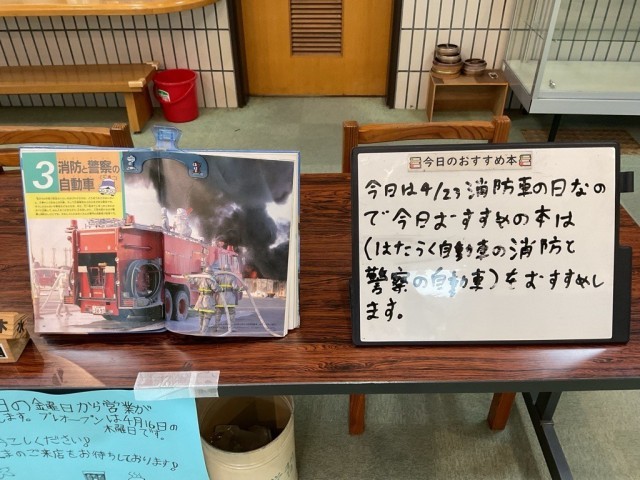 3 消防と警察の
自動車
今日のおすすめ本
今日は4/23消防車の日なの
で今日おすすめの本は
(はたらく自動車の消防と
警察の自動車)をおすすめし
ます。
日の金曜日から営業が
します。プレオープンは4月16日の
火曜日です。
こしください!
まのご来店をお待ちしております!